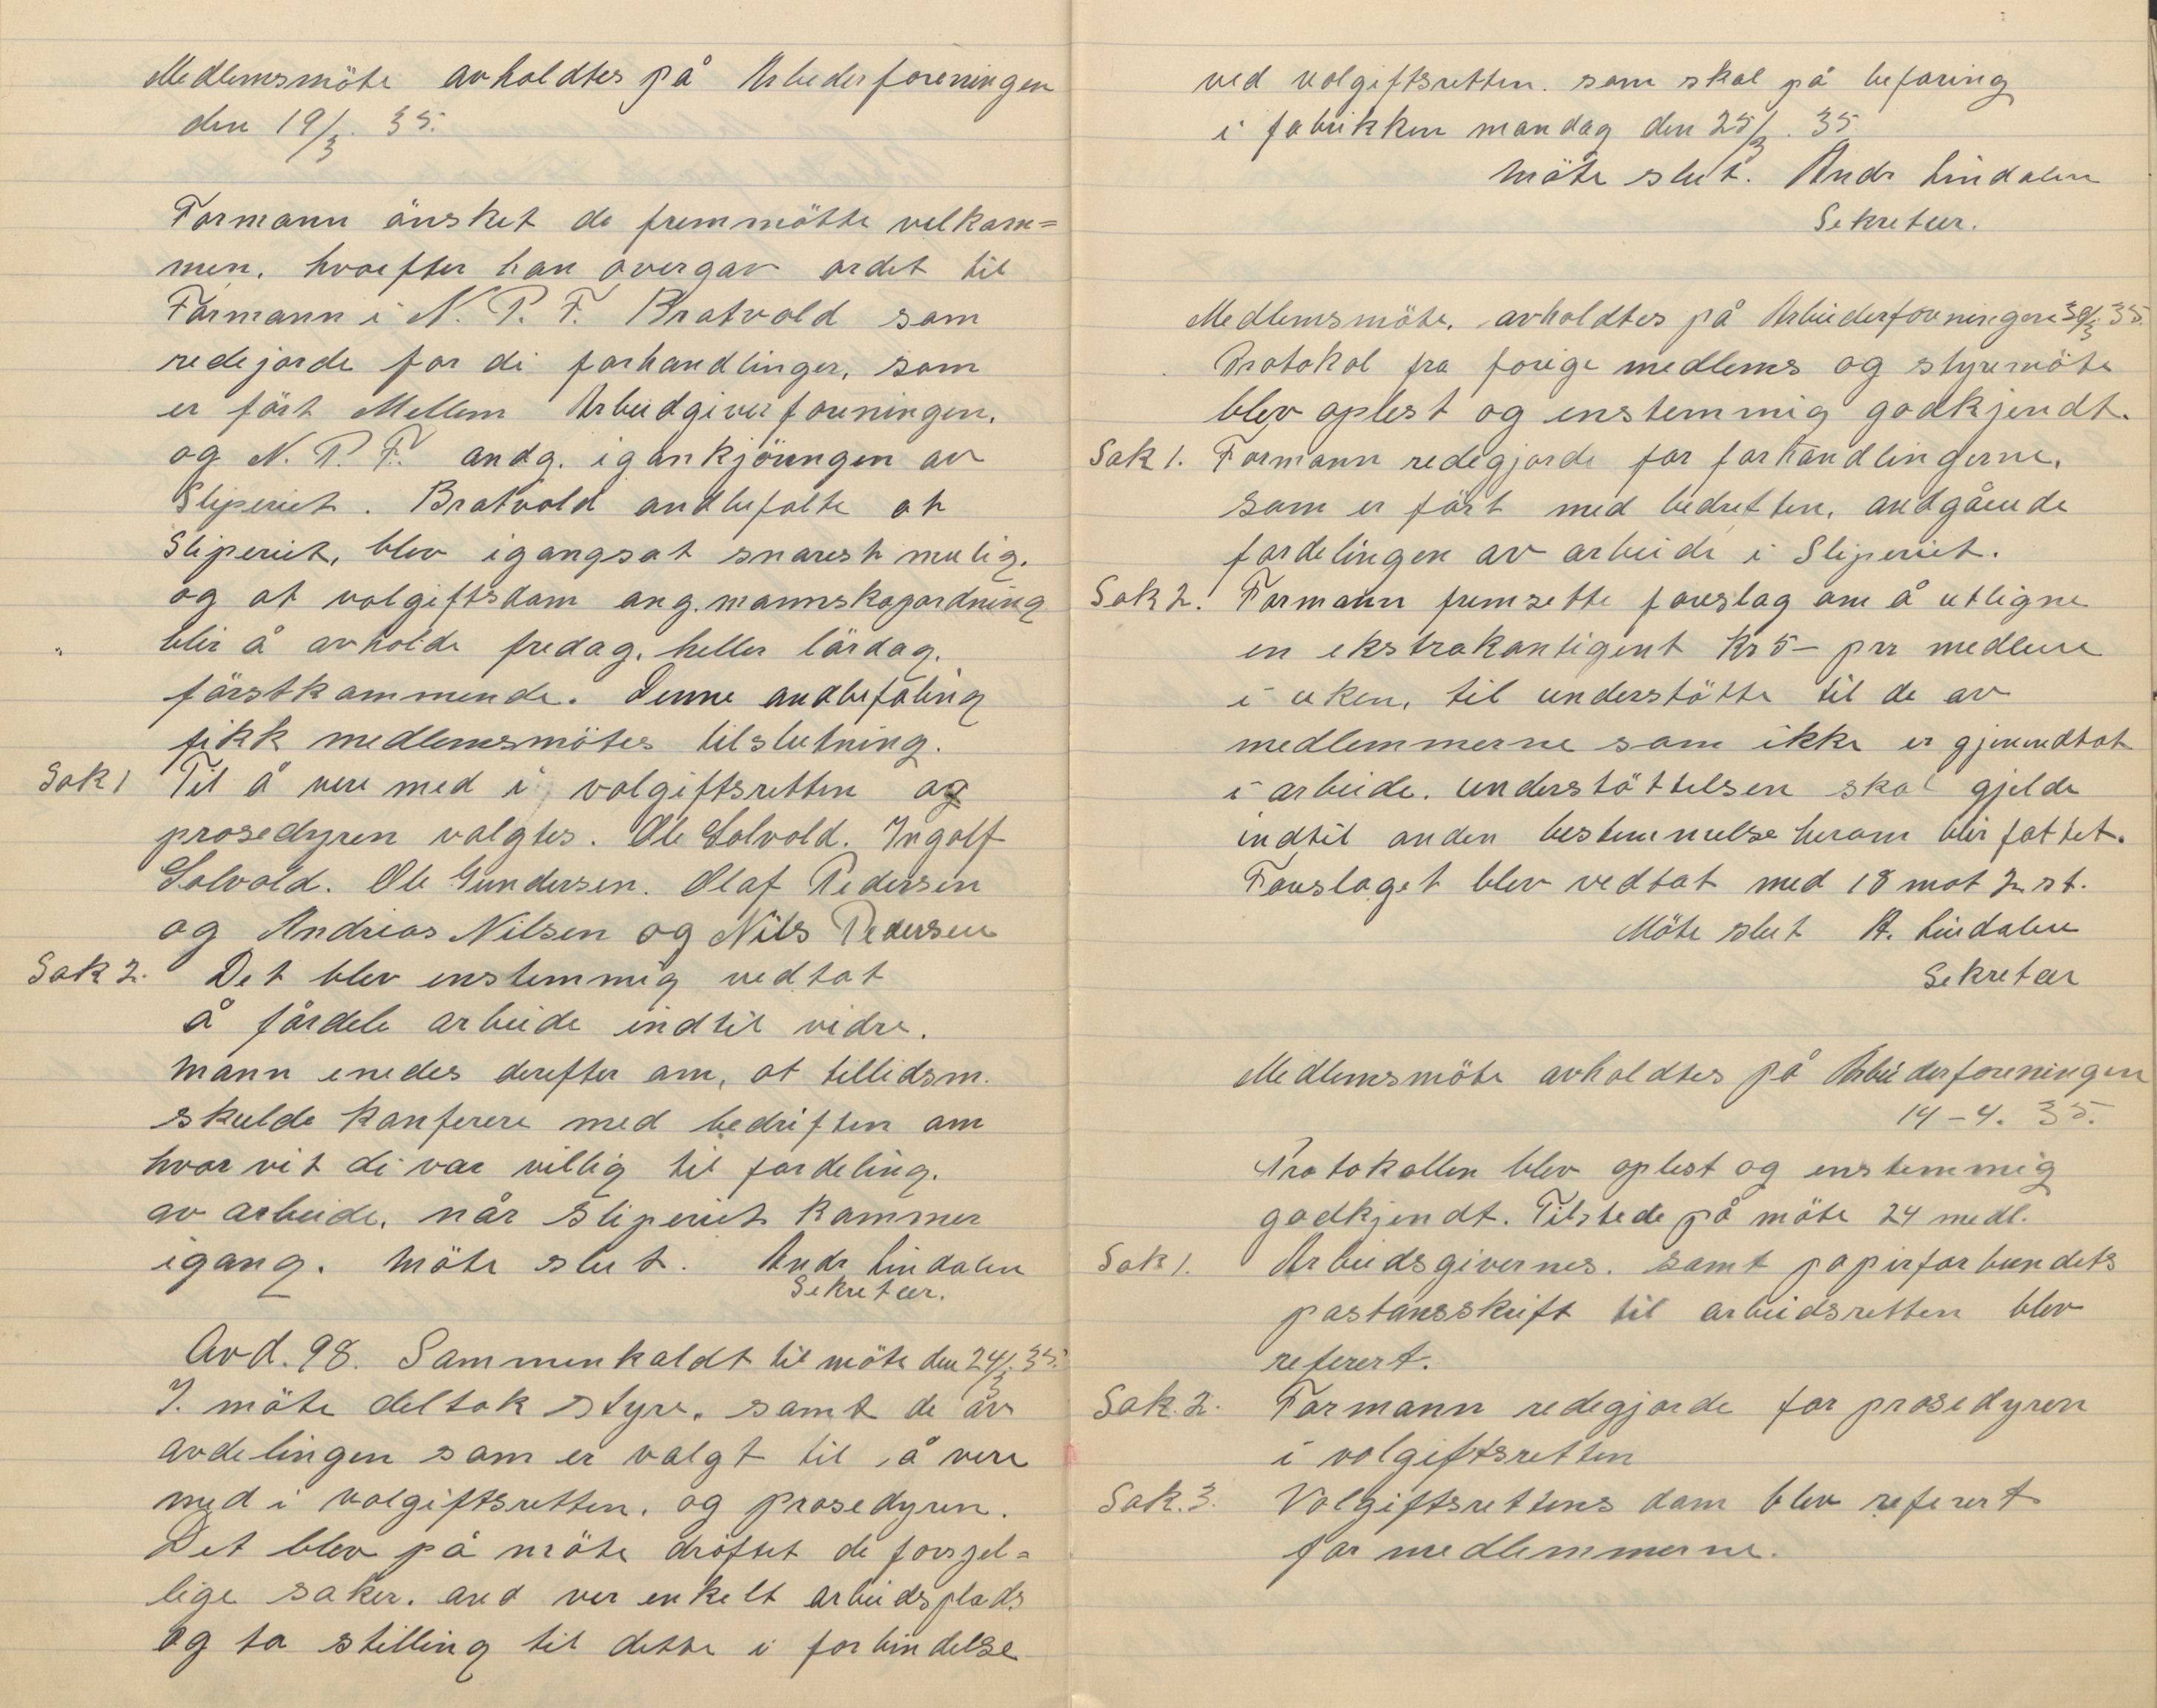 Medlemsmöte avholdtes på Arbederforeningen
den 19/3. 35.
Formann önsket de fremmötte velkom=
men. hvorefter han overgav ordet til
Formann i N. P. F. Bratvold som
redejorde for di forhandlinger, som
er fört Mellem Arbeidgiverforeningen.
og N. P. F. andg. igankjöringen av
Sliperiet. Bratvold andbefalte at
Sliperiet, blev igangsat snarest mulig.
og at volgiftsdom ang. mannskapordning
blir å avholde fredag. heller lördag.
förstkommende. Denne andbefaling
fikk medlemsmötes tilslutning.
Sak 1 Til å vere med i volgiftsretten og
prosedyren valgtes. Ole Solvold. Ingolf
Solvold. Ole Gundersen. Olaf Pedersen
og Andrias Nilsen og Nils Pedersen
Sak 2. Det blev enstemmig vedtat
å fårdele arbeide indtil vidre.
Mann enedes derefter om, at tillidsm.
skulde konferere med bedriften om
hvor vit di var villig til fordeling.
av arbeide, når Sliperiet kommer
igang. Möte slut. Andr Lindalen
Sekretær.
Avd. 98. Sammenkaldt til möte den 24/3. 35.
I. möte deltok styre. samt de av
avdelingen som er valgt til å vere
med i volgiftsretten. og prosedyren.
Det blev på möte dröftet de forsjel=
lige saker. and ver enkelt arbeidsplads
og ta stilling til dette i forbindelse
ved volgiftsretten. som skal på befaring
i fabrikken mandag den 25/3. 35
Möte slut. Andr Lindalen
Sekretær.
Medlemsmöte, avholdtes på Arbeiderforeningen 30/3. 35.
Protokol fra forige medlems og styremöte
blev oplest og enstemmig godkjendt.
Sak 1. Formann redegjorde for forhandlingerne,
som er fört med bedretten, andgående
fordelingen av arbeide i Sliperiet.
Sak 2. Formann fremsette foreslag om å utligne
en ekstrakontigent kr 5- prr medlem
i uken, til understötte til de av
medlemmerne som ikke er gjenindtat
i arbeide. understöttelsen skal gjelde
indtil anden bestemmelse herom blir fattet.
Foreslaget blev vedtat med 18 mot 2 st.
Möte slut A. Lindalen
Sekretær
Medlemsmöte avholdtes på Arbeiderforeningen
14-4. 35.
Protokollen blev oplest og enstemmig
godkjendt. Tilstede på möte 24 medl.
Sak 1. Arbeidsgivernes. samt papirforbundets
pastansskrift til arbeidsretten blev
referert.
Sak. 2. Formann redegjorde for prosedyren
i volgiftsretten
Sak. 3. Volgiftsrettens dom blev referert
for medlemmerne.